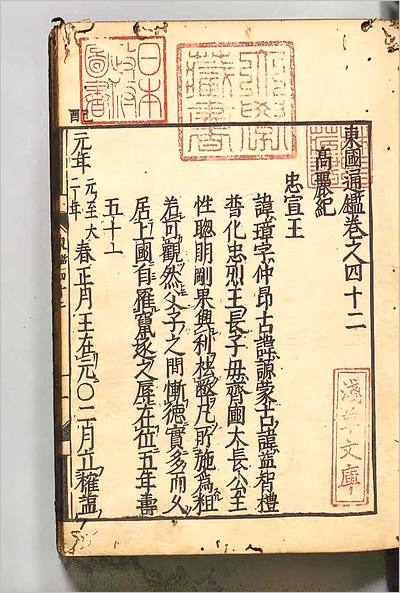 日本政府圖書
藏書
東國通鑑卷之四十二
高麗紀
忠宣王
諱璋字仲昂古諱謜蒙古諱益智禮
普化忠烈王長子毋齊國大長公主
性聰明剛果興利祛弊凡所施為粗
若可觀然父子之間慚德實多而久
居上國自罹竄逐之辱在位五年壽
五十一
元年 元至大二年 春正月王在元〇二月立榷鹽
淺草文庫